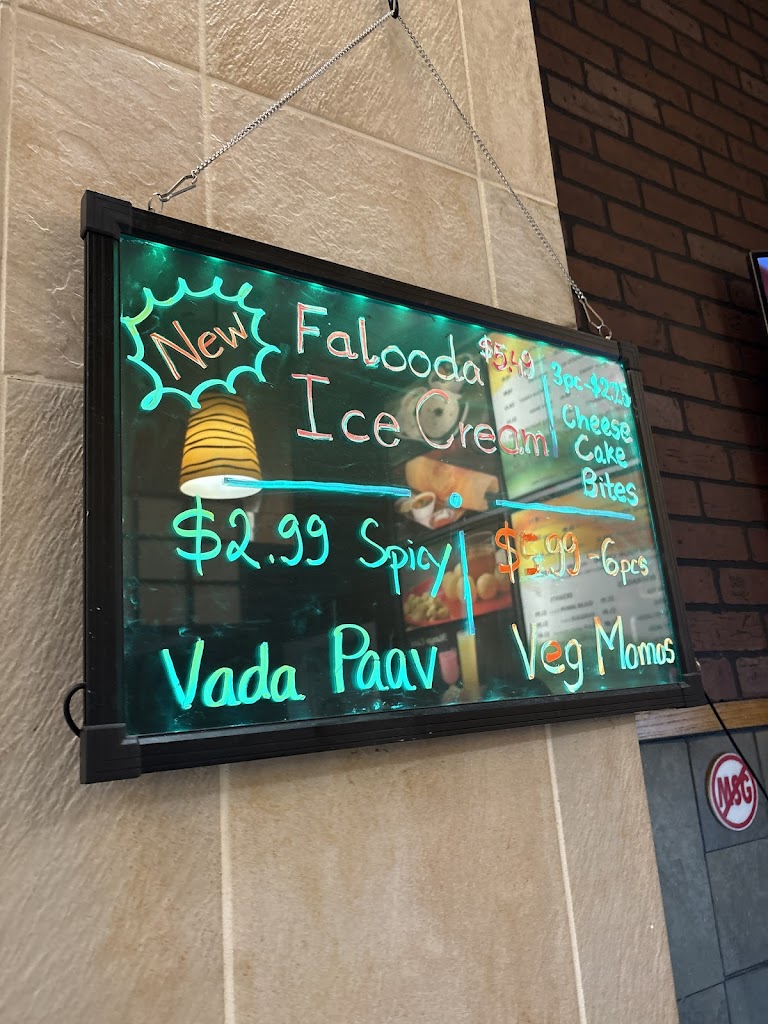 New
Falooda $5.49
Ice Cream
3pc-$2.25
Cheese
Cake
Bites
$2.99 Spicy
Vada Paav
$5.99-6pcs
Veg Momos
MSG